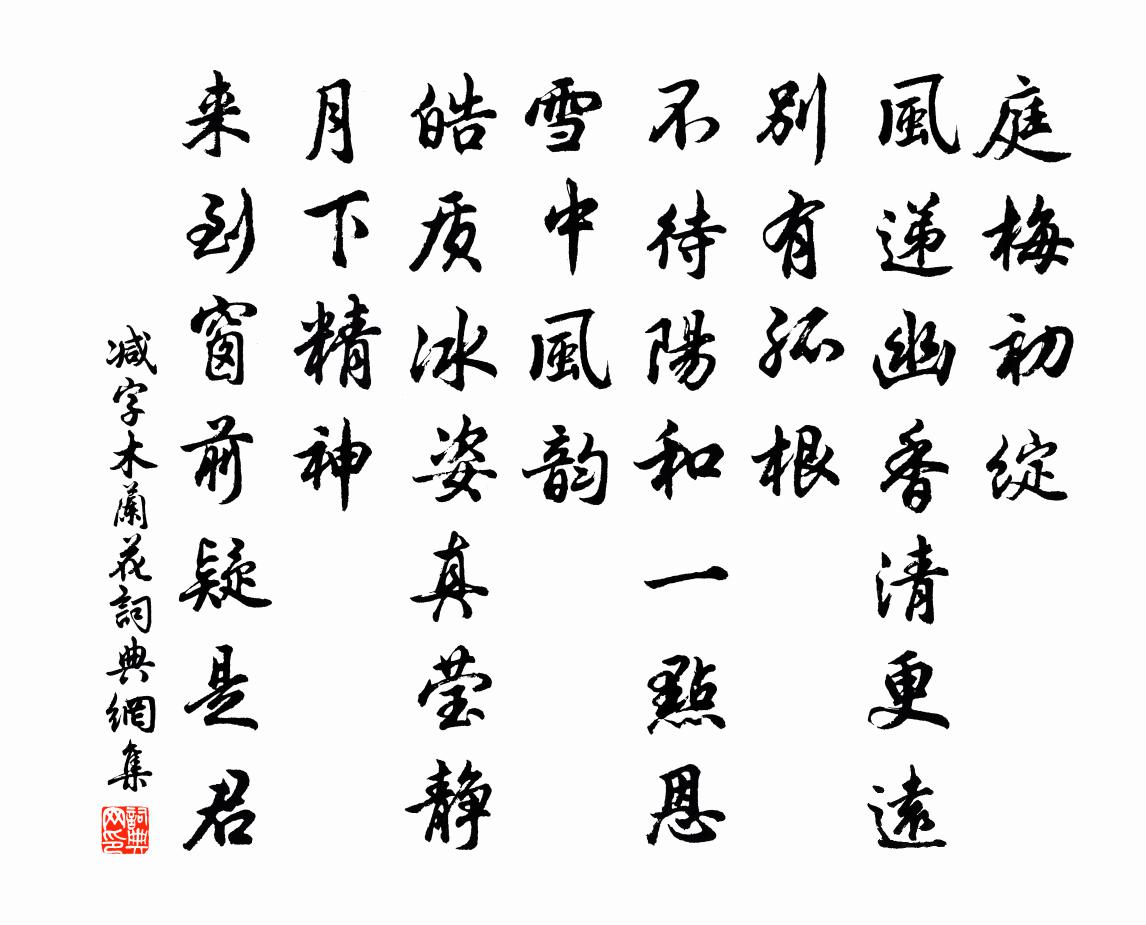 庭梅初綻
風递幽香清更遠
別有孤根
不待陽和一點恩
雪中風韵
皓质冰姿真莹静
月下精神
来到窗前疑是君
减字木蘭花詞典網集
詞典网印